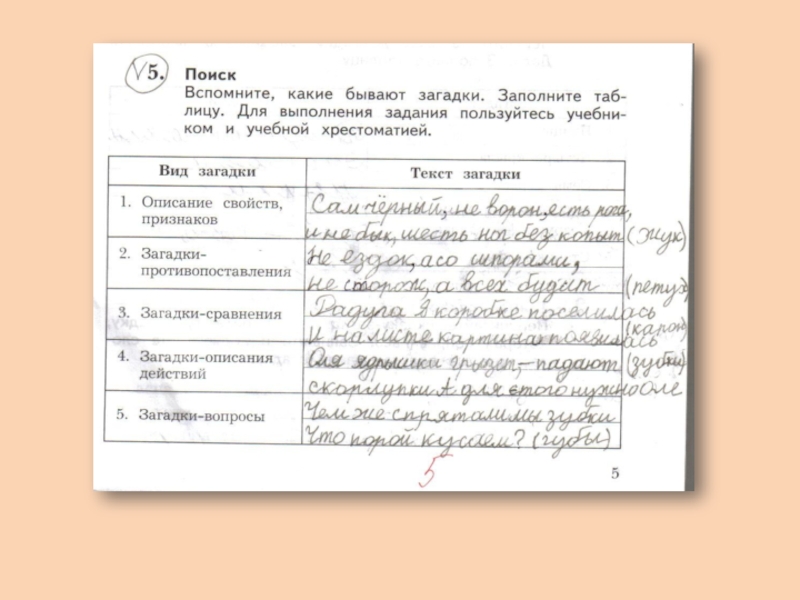 √5. Поиск
Вспомните, какие бывают загадки. Заполните таб-
лицу. Для выполнения задания пользуйтесь учебни-
ком и учебной хрестоматией.
Вид загадки
Текст загадки
1. Описание свойств,
признаков
Сам чёрный, не ворон, есть рога,
и не бык, шесть ног без копыт (жук)
2. Загадки-
противопоставления
Не ездок, а со шпорами,
не сторож, а всех будит (петух)
3. Загадки-сравнения
Радуга в коробке поселилась
и на листе картина появилась
4. Загадки-описания
действий
Оля ядрышки грызет, - падают (зубы)
скорлупки А для этого нужно Оле
5. Загадки-вопросы
Чем же спрятали мы зубки
Что порой кусаем? (губы)
5
5